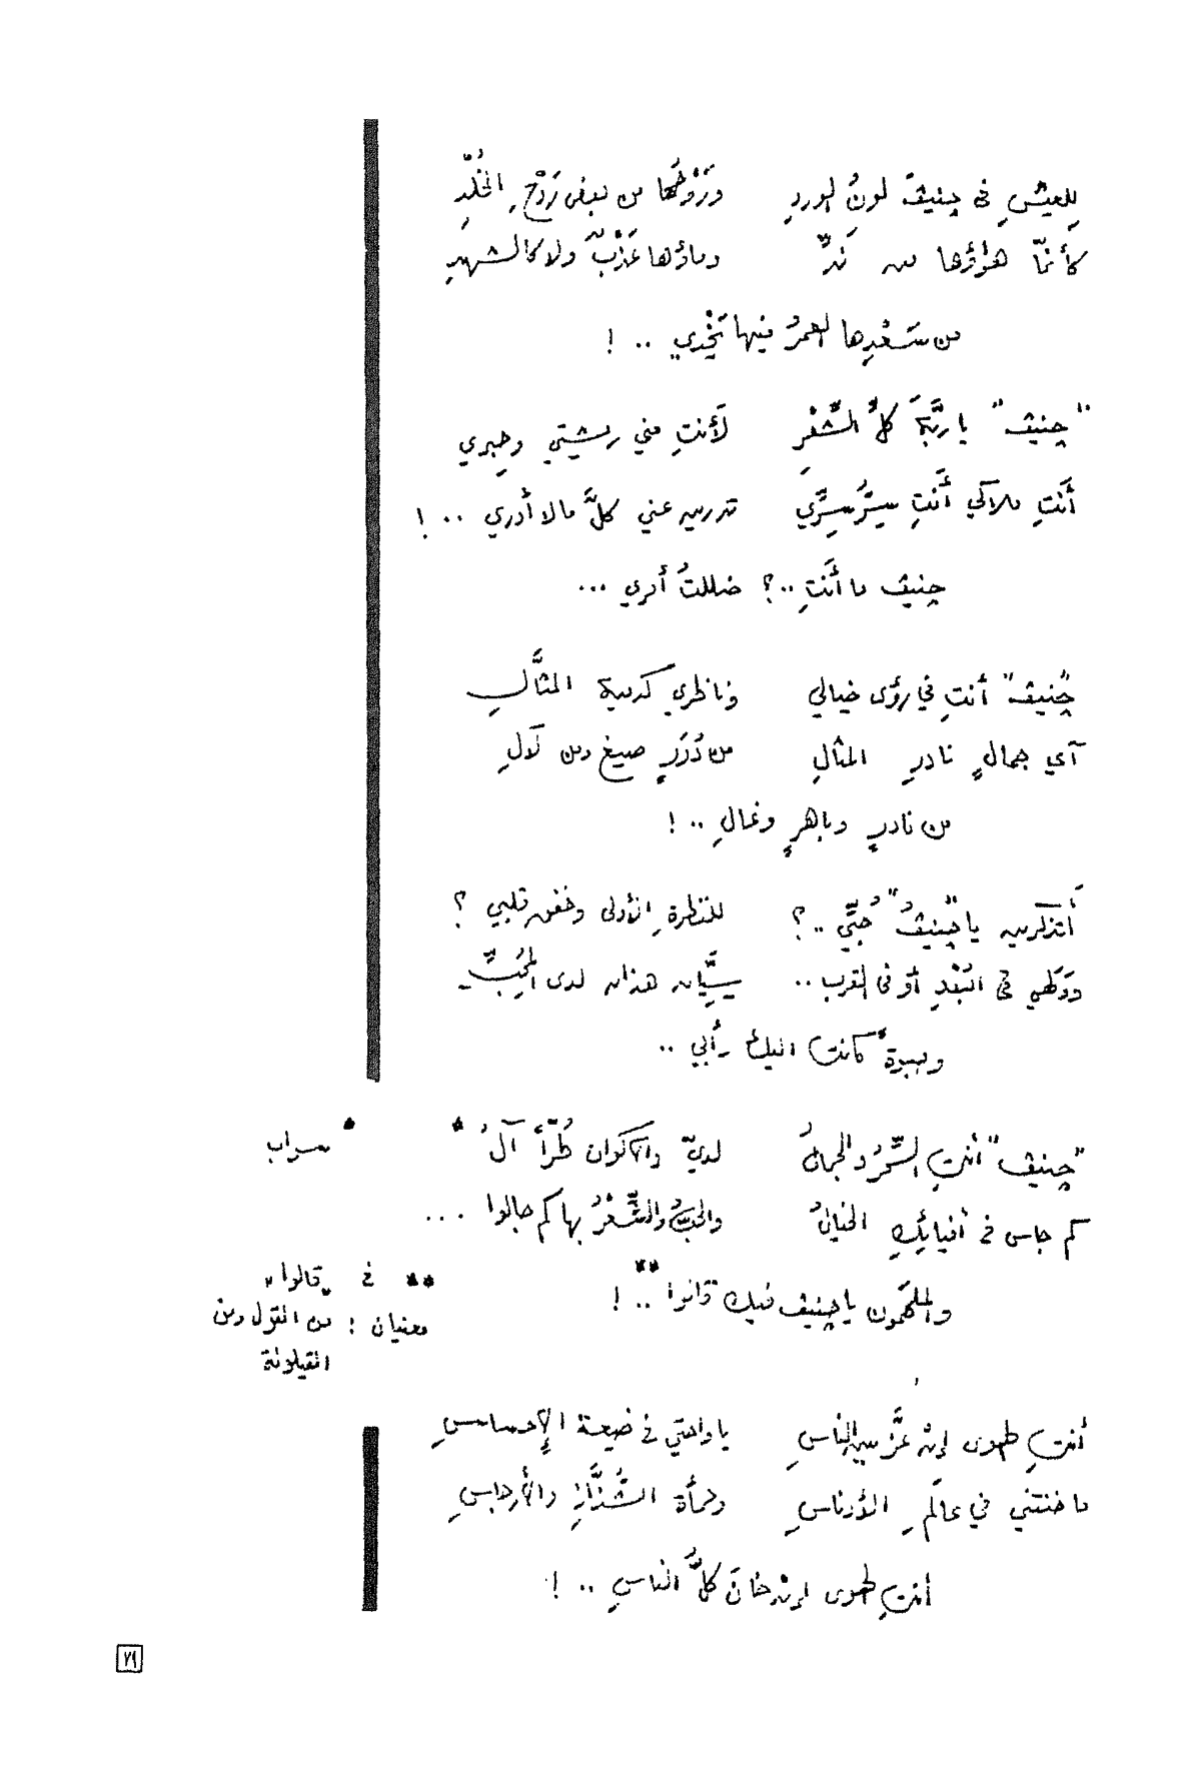 لِلعيشِ في جنيفَ لونُ الوردِ وَرَوْضُها من بعض رَوْحِ الخُلْدِ
كأنمّا هؤؤها من نَدٍّ وماؤها عَذْبٌ ولا كالشهدِ
من سَعْدِها العمرُ فيها يُجْدي .. !
"جنيف" يا ربَّةَ كلِّ الشِّعْرِ لَأنتِ مني ريشتي وحِبري
أنَتِ ملاكي أنَتِ سِرُّ سِرِّي تدرين عني كلَّ ما لا أدري .. !
جنيف ما أنَتِ ..؟ ضللتُ أمري ...
"جنيف" أنتِ في رؤى خيالي وناظري كدمية المثَّالِ
آي جمالٍ نادرِ المثالِ من دُرَرٍ صيغ ومن لآلِ
من نادرٍ وباهرٍ وغالِ .. !
أتذكرين يا "جنيفُ" حُبِّي ..؟ للنظرةِ الأولى وخفق قلبي ؟
وَوَلَهي في البُعْدِ أو في القرب .. سِيَّان هذان لدى المُحِبِّ
وصبوةٌ كانت اليك دأبي ..
"جنيف" أنتِ السِّحْرُ والجمالُ لديَّ والأكوان طُرّاً آلُ * * سراب
كم جاس في أفيائِكِ الخيالُ والحبُّ والشِّعْرُ بها كم جالوا ...
والملهَمون يا جنيف فيك قالوا ** .. !
** في "قالوا"
معنيان : من القول ومن
القيلولة
أنتِ الهوى إن عَزَّ بين الناسِ يا واحتي في ضيعة الإحساسِ
ما خنتني في عالَمِ الأدناسِ وحمأة الشُّذَّاذِ والأرجاسِ
أنتِ الهوى إن خانَ كلُّ الناسِ .. !
٢٩